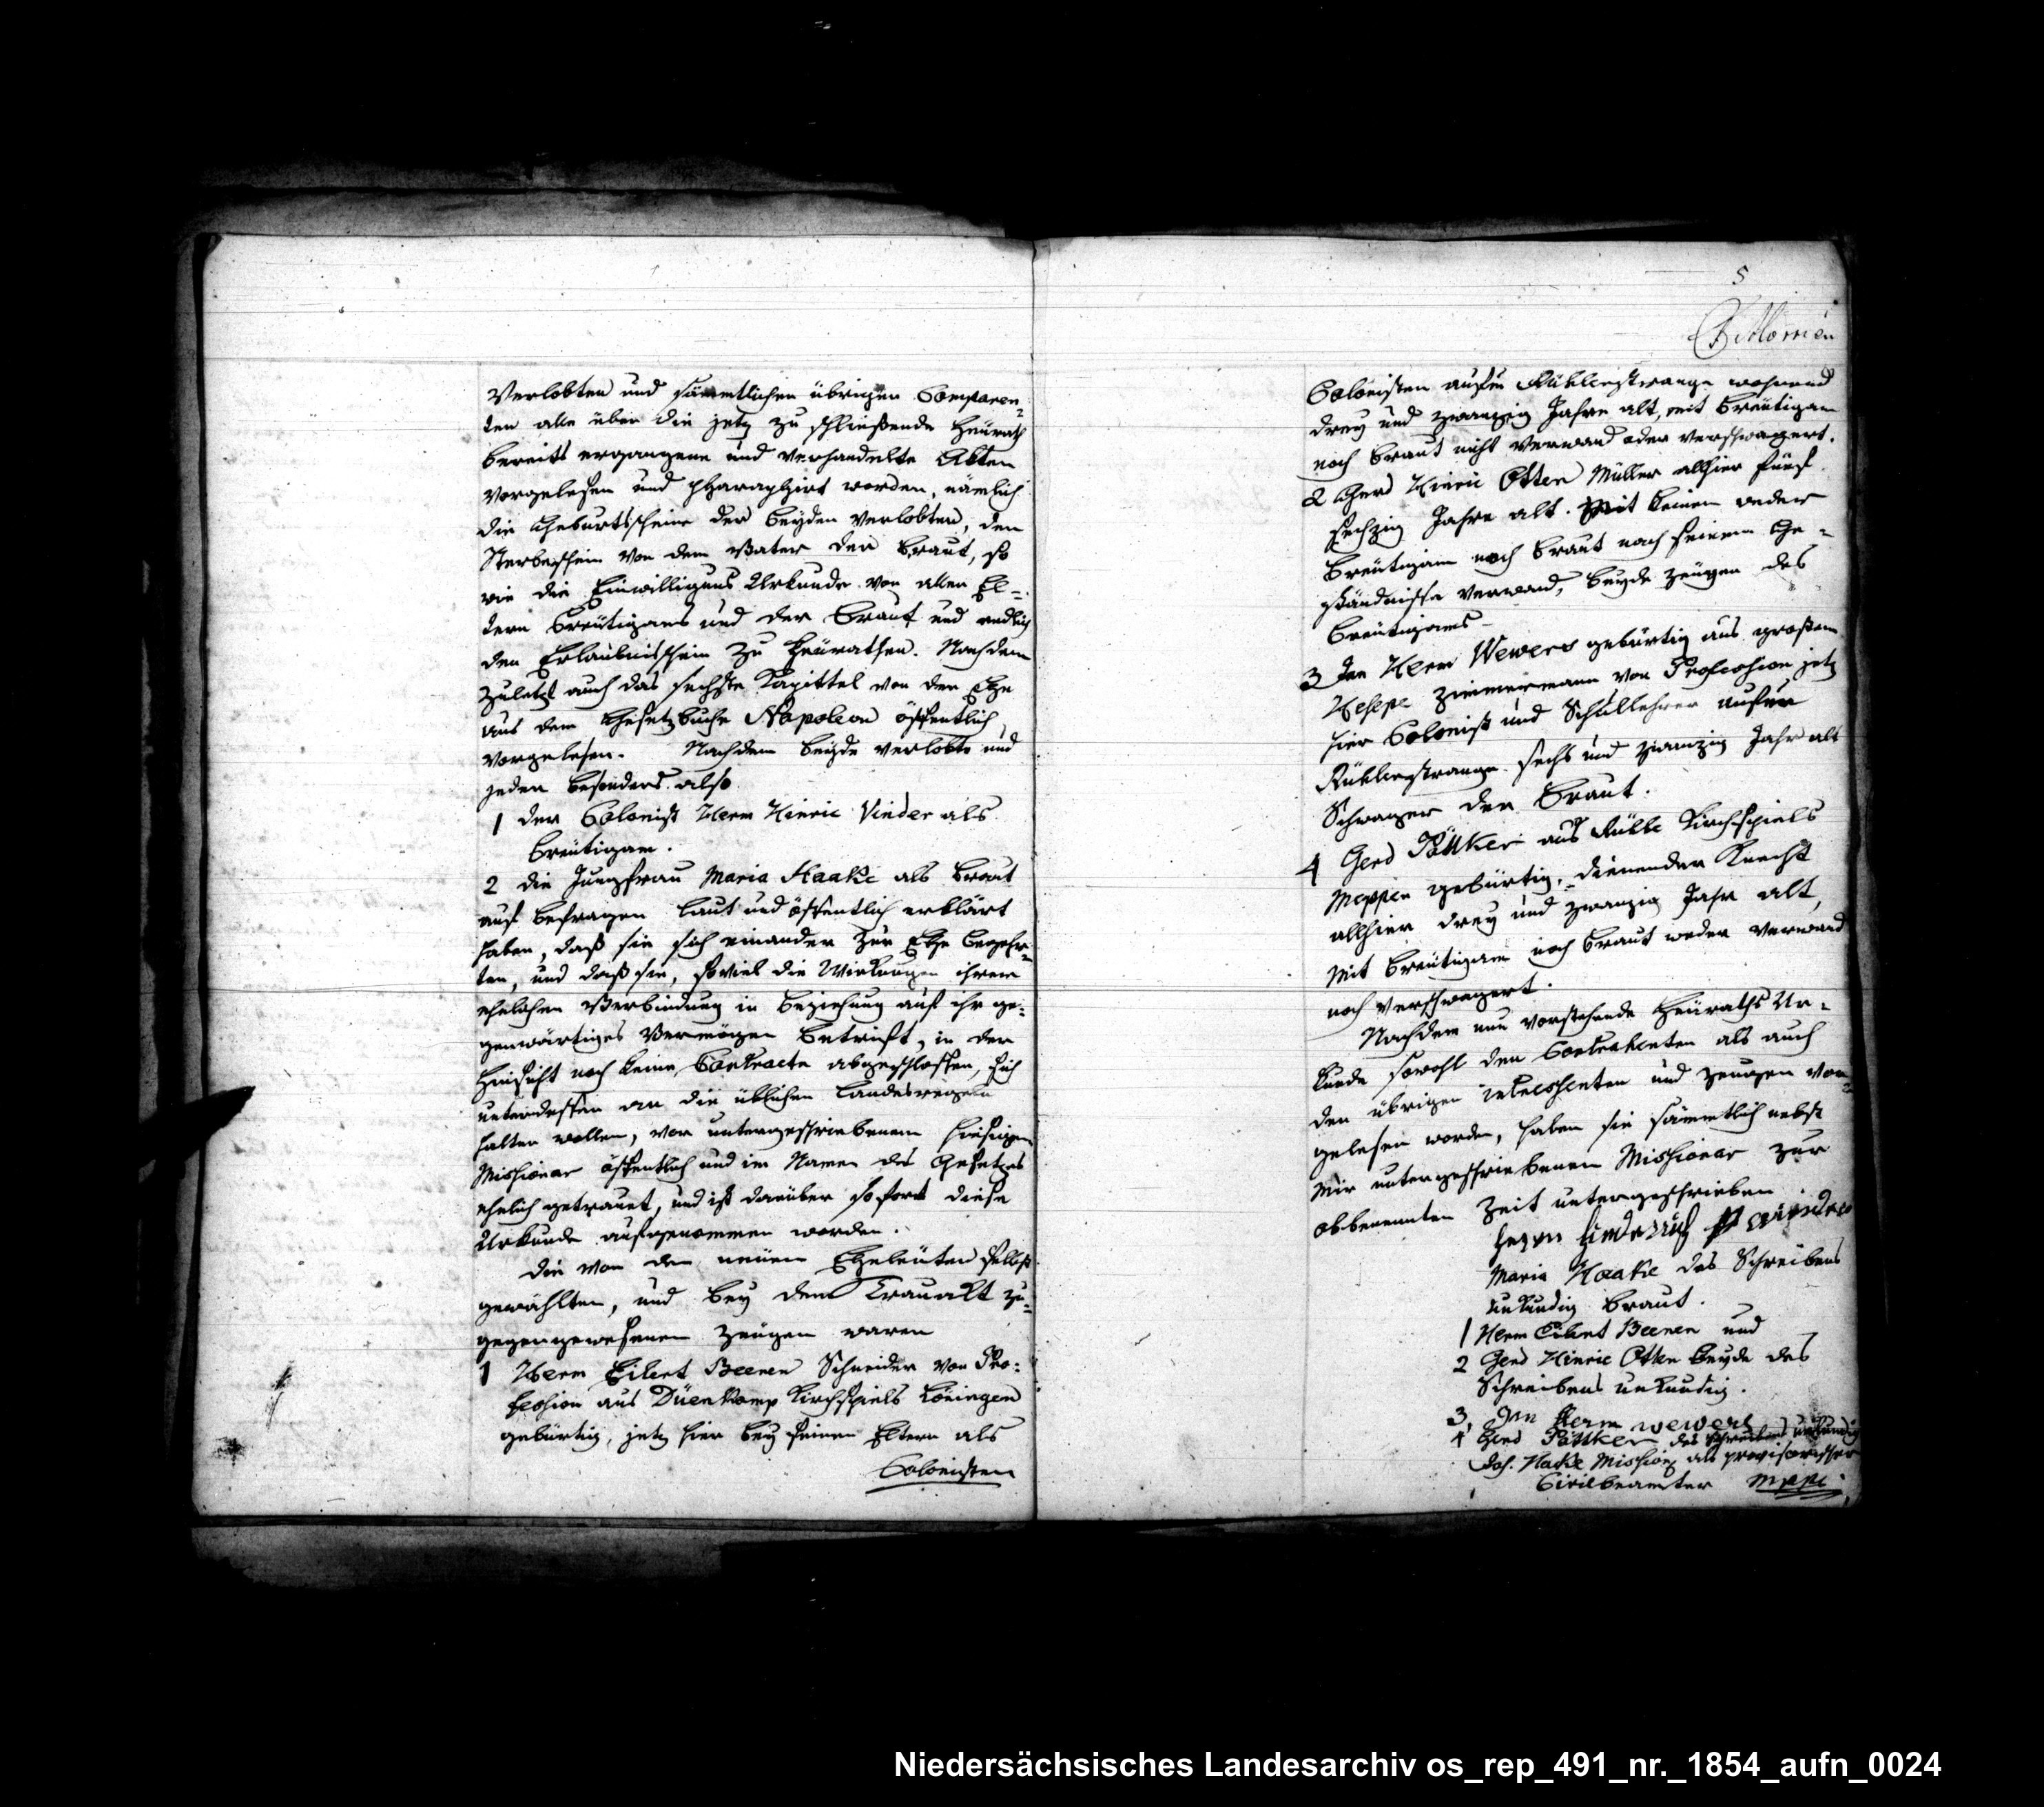 Verlobten und sämmtlichen übrigen Comparen-
ten alle über die jetz zu schließende Heürath
bereits ergangene und verhandelte Akten
vorgelesen und pharaphirt worden, nämlich
die Geburtsscheine der beyden Verlobten, den
Sterbeschein von dem Vater der Braut, so
wie die Einwilligungs Urkunde von allen El-
tern Breütigams und der Braut und endlich
den Erlaubnißschein zu heürathen. Nachdem
zuletzt auch das sechste Kapittel von der Ehe
aus dem Gesetzbuche Napoleon öffentlich
vorgelesen. Nachdem beyde Verlobte und
jeder besonders also
1 der Colonist Herm Hinric Vinder als
Breütigam.
2 die Jungfrau Maria Haake als Braut
auf befragen laut und öffentlich erklärt
haben, daß sie sich einander zur Ehe begehr-
ten, und daß sie, soviel die Wirkungen ihrer
ehelichen Verbindung in Beziehung auf ihr ge-
genwärtiges Vermögen betrift, in der
Hinsicht noch keine Contracte abgeschlossen, sich
unterdessen an die üblichen Landesregeln
halten wollen, vor untergeschriebenem hiesigen
Missionar öffentlich und im Namen des Gesetzes
ehelich getrauet, und ist darüber sofort diese
Urkunde aufgenommen worden.
die von den neüen Eheleüten selbst
gewählten, und bey dem Trauakt zu-
gegengewesenen Zeügen waren
1 Herm Eilert Beenen Schneider von Pro-
fession aus Düenkamp Kirchspiels Löningen
gebürtig, jetz hier bey seinen Eltern als
Colonisten
5
Colonisten aufm Rühlerstwange wohnend
drey und zwanzig Jahre alt, mit Breütigam
noch Braut nicht verwand oder verschwagert.
2 Gerd Hinric Otten Müller allhier fünf
sechzig Jahre alt. Mit keinem weder
Breütigam noch Braut nach seinem Ge-
ständnisse verwand, beyde Zeügen des
Breütigams
3 Jan Herm Wewers gebürtig aus großen
Hesepe Zimmermann von Profession jetz
hier Colonist und Schullehrer aufm
Rühlerstwange sechs und zwanzig Jahr alt
Schwager der Braut.
4 Gerd Pöttker aus Rühle Kirchspiels
Meppen gebürtig, dienender Knecht
allhier drey und zwanzig Jahr alt,
mit Breütigam noch Braut weder verwand
noch verschwagert.
Nachdem nun vorstehende Heüraths Ur-
kunde sowohl den Contrahenten als auch
den übrigen Interessenten und Zeugen vor-
gelesen worden, haben sie sämmtlich nebst
mir untergeschriebenen Missionar zur
obbenennten Zeit untergeschrieben
Maria Haake des Schreibens
unkundig Braut.
1 Herm Eilert Beenen und
2 Gerd Hinric Otten beyde des
Schreibens unkundig.
3, Jan Herm wewers
4 Gerd Pöttker des schreibens unkundig
Joh. Hacke Mission als provisorischer
Civilbeamter mppi
Niedersächsisches Landesarchiv os_rep_491_nr._1854_aufn_0024